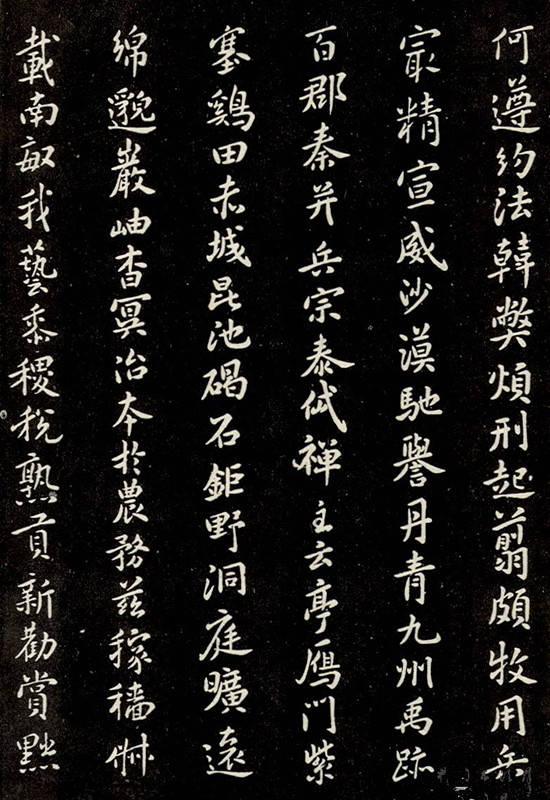 何遵約法韓弊煩刑起翦頗牧用軍
冣精宣威沙漠馳譽丹青九州禹跡
百郡秦并岳宗泰岱禪主云亭鴈門紫
塞鷄田赤城昆池碣石鉅野洞庭曠遠
綿邈巖岫杳冥治本於農務茲稼穡俶
載南畝我藝黍稷稅熟貢新勸賞黜